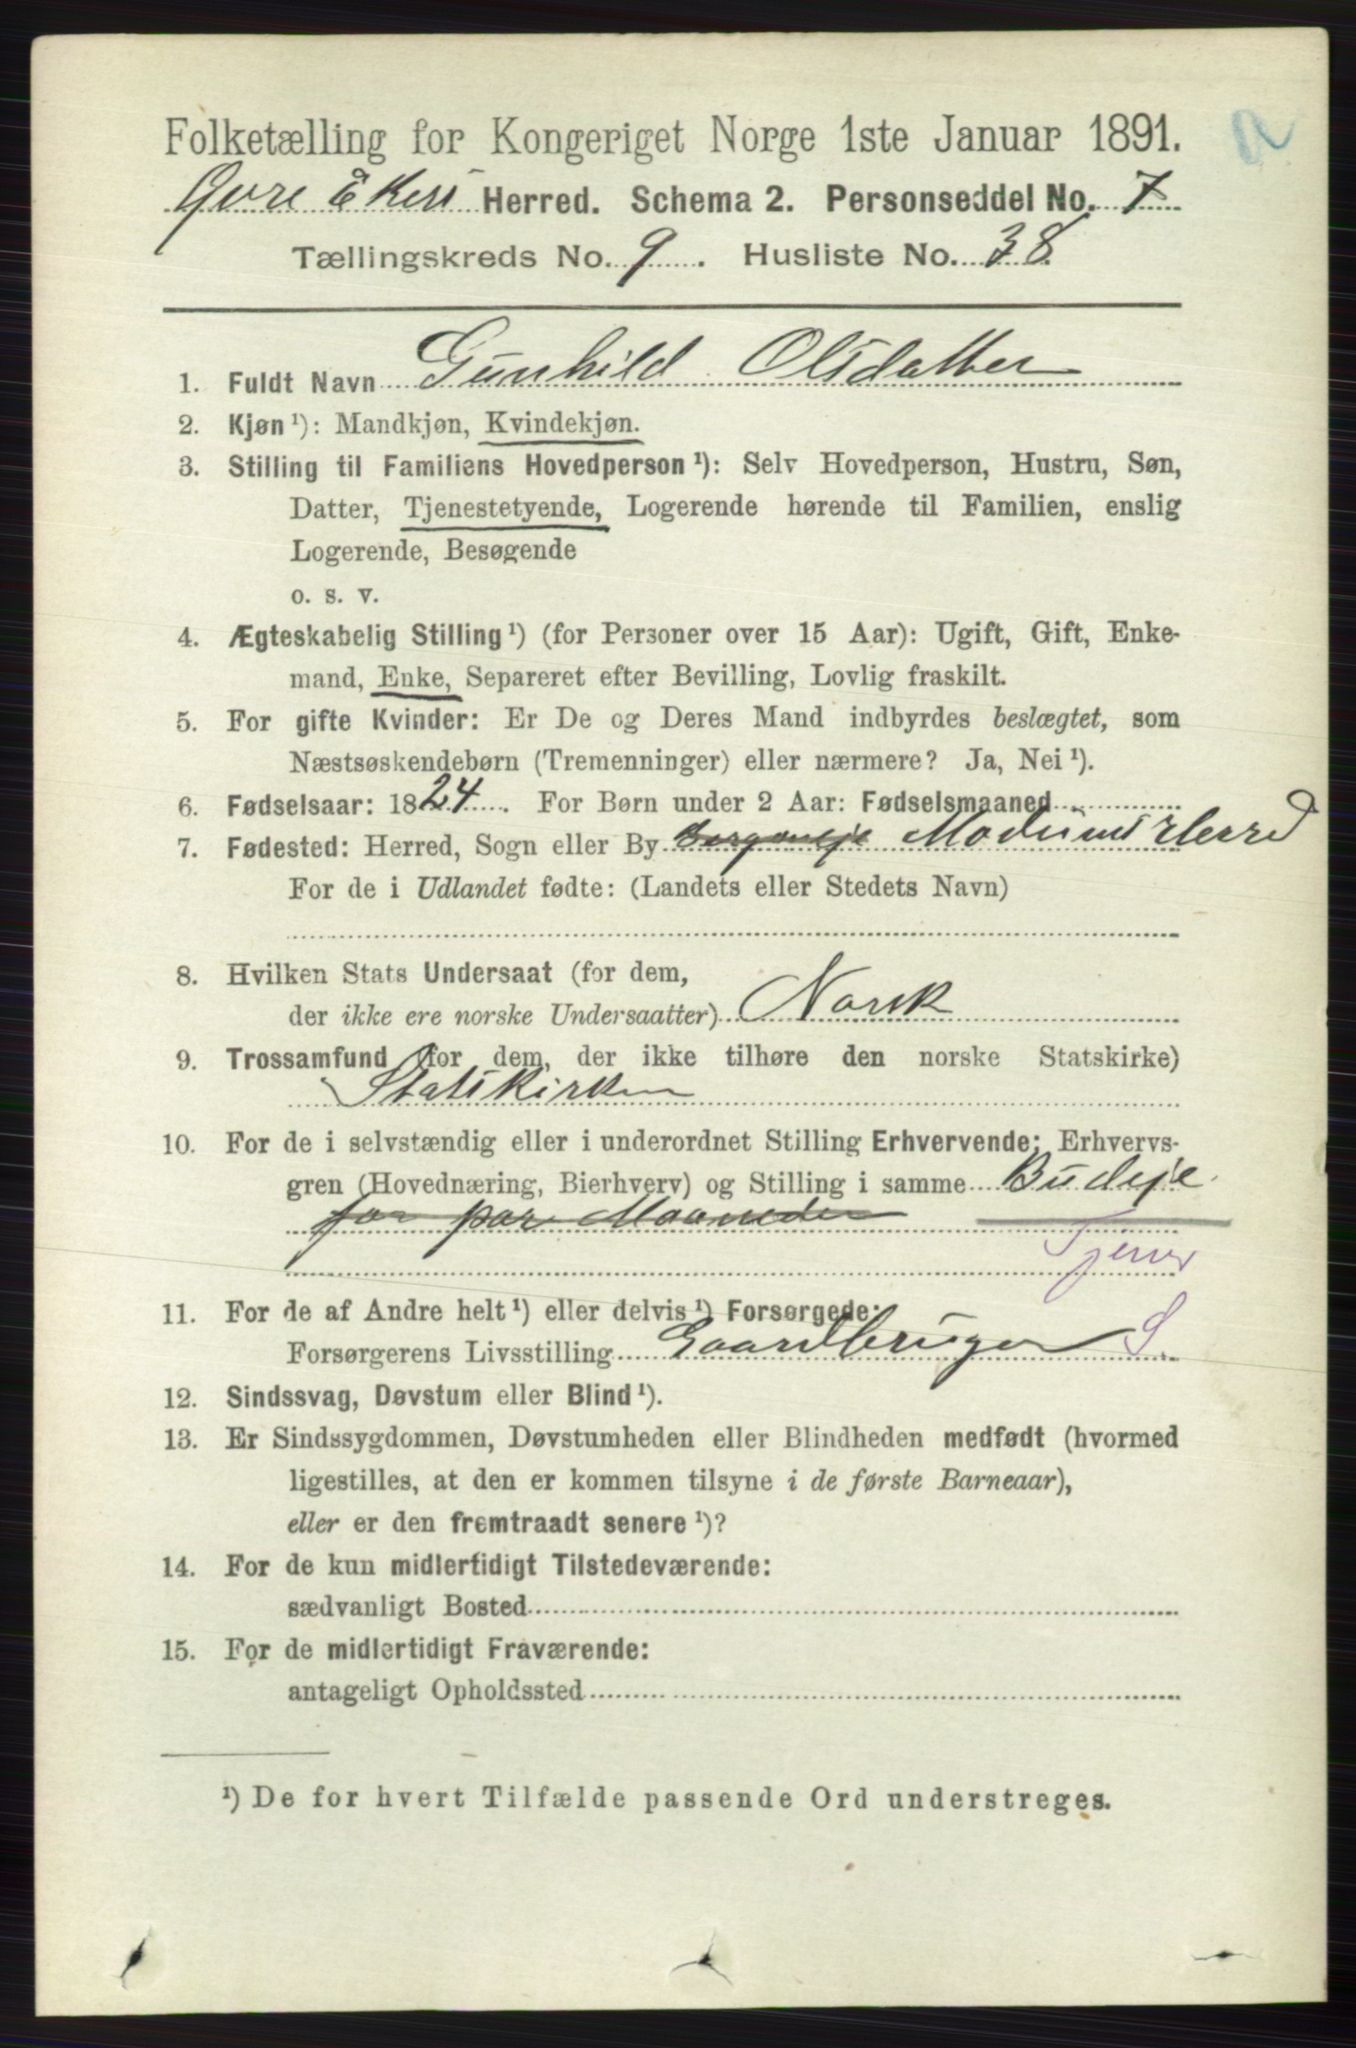 Folketælling for Kongeriget Norge 1ste Januar 1891.
Øvre Ekers Herred. Schema 2. Personseddel No. 7
Tællingskreds No. 9. Husliste No. 38.
1. Fuldt Navn Gunhild Olsdatter
2. Kjøn ¹): Mandkjøn, Kvindekjøn.
3. Stilling til Familiens Hovedperson ¹): Selv Hovedperson, Hustru, Søn,
Datter, Tjenestetyende, Logerende hørende til Familien, enslig
Logerende, Besøgende
o. s. v.
4. Ægteskabelig Stilling ¹) (for Personer over 15 Aar): Ugift, Gift, Enke-
mand, Enke, Separeret efter Bevilling, Lovlig fraskilt.
5. For gifte Kvinder: Er De og Deres Mand indbyrdes beslægtet, som
Næstsøskendebørn (Tremenninger) eller nærmere? Ja, Nei ¹).
6. Fødselsaar: 1824. For Børn under 2 Aar: Fødselsmaaned
7. Fødested: Herred, Sogn eller By Modums Herred
For de i Udlandet fødte: (Landets eller Stedets Navn)
8. Hvilken Stats Undersaat (for dem,
der ikke ere norske Undersaatter) Norsk
9. Trossamfund (for dem, der ikke tilhøre den norske Statskirke)
Statskirken
10. For de i selvstændig eller i underordnet Stilling Erhvervende: Erhvervs-
gren (Hovednæring, Bierhverv) og Stilling i samme Budeje
for par Maaneder
Tjener
11. For de af Andre helt ¹) eller delvis ¹) Forsørgede:
Forsørgerens Livsstilling Gaardbruger S.
12. Sindssvag, Døvstum eller Blind ¹).
13. Er Sindssygdommen, Døvstumheden eller Blindheden medfødt (hvormed
ligestilles, at den er kommen tilsyne i de første Barneaar),
eller er den fremtraadt senere ¹)?
14. For de kun midlertidigt Tilstedeværende:
sædvanligt Bosted
15. For de midlertidigt Fraværende:
antageligt Opholdssted
¹) De for hvert Tilfælde passende Ord understreges.